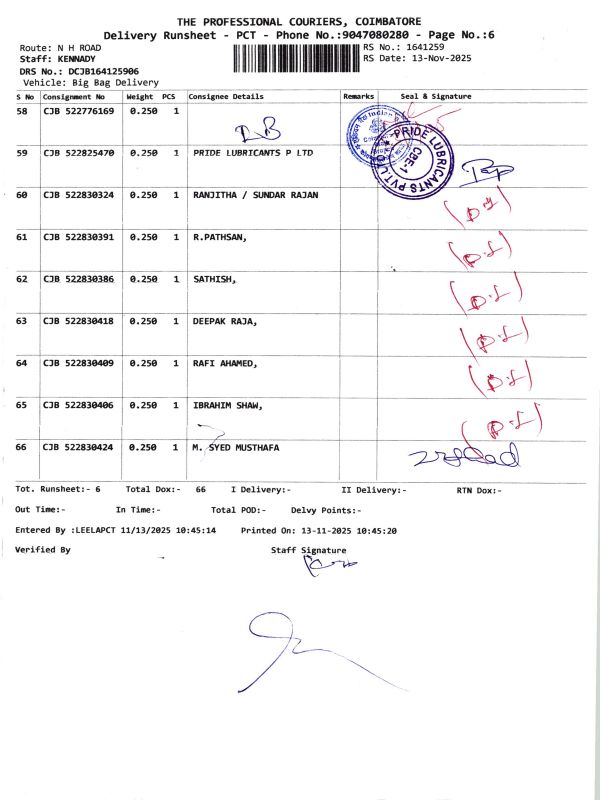 THE PROFESSIONAL COURIERS, COIMBATORE
Delivery Runsheet - PCT - Phone No.:9047080280 - Page No.:6
Route: N H ROAD
RS No.: 1641259
Staff: KENNADY
RS Date: 13-Nov-2025
DRS No.: DCJB164125906
Vehicle: Big Bag Delivery
S No Consignment No Weight PCS Consignee Details Remarks Seal & Signature
58 CJB 522776169 0.250 1
59 CJB 522825470 0.250 1 PRIDE LUBRICANTS P LTD
PRIDE LUBRICANTS PVT. L
CBE-1
60 CJB 522830324 0.250 1 RANJITHA / SUNDAR RAJAN
61 CJB 522830391 0.250 1 R.PATHSAN,
62 CJB 522830386 0.250 1 SATHISH,
63 CJB 522830418 0.250 1 DEEPAK RAJA,
64 CJB 522830409 0.250 1 RAFI AHAMED,
65 CJB 522830406 0.250 1 IBRAHIM SHAW,
66 CJB 522830424 0.250 1 M. SYED MUSTHAFA
Tot. Runsheet:- 6 Total Dox:- 66 I Delivery:- II Delivery:- RTN Dox:-
Out Time:- In Time:- Total POD:- Delvy Points:-
Entered By :LEELAPCT 11/13/2025 10:45:14 Printed On: 13-11-2025 10:45:20
Verified By Staff Signature